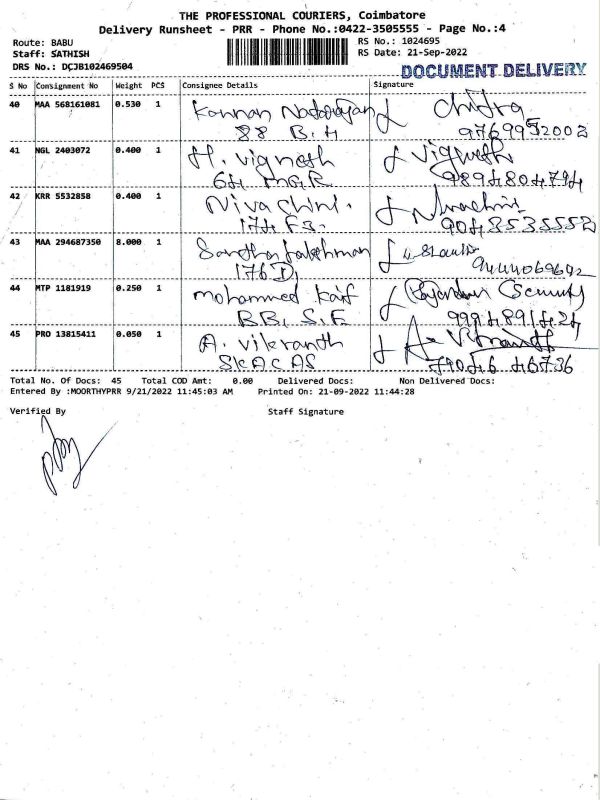 THE PROFESSIONAL COURIERS, Coimbatore
Delivery Runsheet - PRR - Phone No.:0422-3505555 - Page No.:4
Route: BABU RS No.: 1024695
Staff: SATHISH RS Date: 21-Sep-2022
DRS No.: DCJB102469504 DOCUMENT DELIVERY
S No Consignment No Weight PCS Consignee Details Signature
40 MAA 568161081 0.530 1 Kannan Natarajan Chitra
88 B.H 9769952002
41 NGL 2403072 0.400 1 H. vignesh Vignesh
64 MGR 9894804794
42 KRR 5532858 0.400 1 Nivashini.
174 F3. 9043535552
43 MAA 294687350 8.000 1
176 D, 9444069642
44 MTP 1181919 0.250 1 mohammed Kaif
BB, S.E 9994891424
45 PRO 13815411 0.050 1 A. vikranth
SKACAS 79046 46736
Total No. Of Docs: 45 Total COD Amt: 0.00 Delivered Docs: Non Delivered Docs:
Entered By :MOORTHYPRR 9/21/2022 11:45:03 AM Printed On: 21-09-2022 11:44:28
Verified By Staff Signature